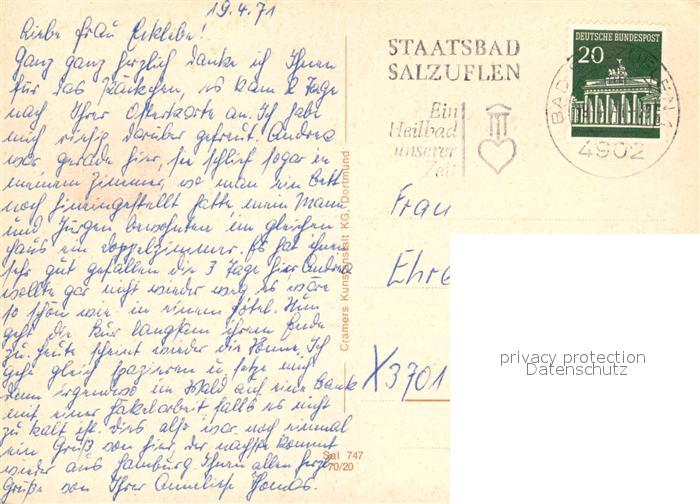 19.4.71
Liebe Frau
Ganz ganz herzlich danke ich Ihnen
für das Päckchen, es kam 2 Tage
nach Ihrer Osterkarte an. Ich habe
mich riesig darüber gefreut. Andrea
war gerade hier, sie schlief sogar in
meinem Zimmer, wo man ein Bett
noch hineingestellt hatte mein Mann
und Jürgen bewohnten im gleichen
Haus ein Doppelzimmer. Es hat ihnen
sehr gut gefallen die 3 Tage hier Andrea
wollte gar nicht wieder weg es wäre
so schön wie in einem Hotel. Nun
geht die Kur langsam ihrem Ende
zu. Heute scheint wieder die Sonne. Ich
gehe gleich spazieren u. setze mich
dann irgendwo im Wald auf eine Bank
mit einer Häkelarbeit falls es nicht
zu kalt ist. Dies also war noch einmal
ein Gruß von hier der nächste kommt
wieder aus Hamburg. Ihnen allen herzl.
Grüße von Ihrer Anneliese Thomas.
Cramers Kunstanstalt KG, Dortmund
Sal 747
70/20
STAATSBAD
SALZUFLEN
Ein
Heilbad
unserer
Zeit
DEUTSCHE BUNDESPOST
20
BAD SALZUFLEN 1
4902
Frau
Ehre
X3701
privacy protection
Datenschutz